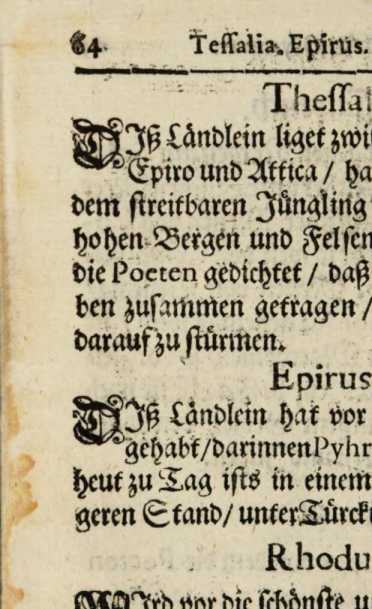 64 Tessalia. Epirus.
Thessal
DIß Ländlein liget zwi
Epiro und Attica / ha
dem streitbaren Jüngling
hohen Bergen und Felsen
die Poeten gedichtet / daß
ben zusammen getragen /
darauf zu stürmen.
Epirus
DIß Ländlein hat vor
gehabt/darinnen Pyhr
heut zu Tag ists in einem
geren Stand/ unter Türck
Rhodu
WIrd vor die schönste u